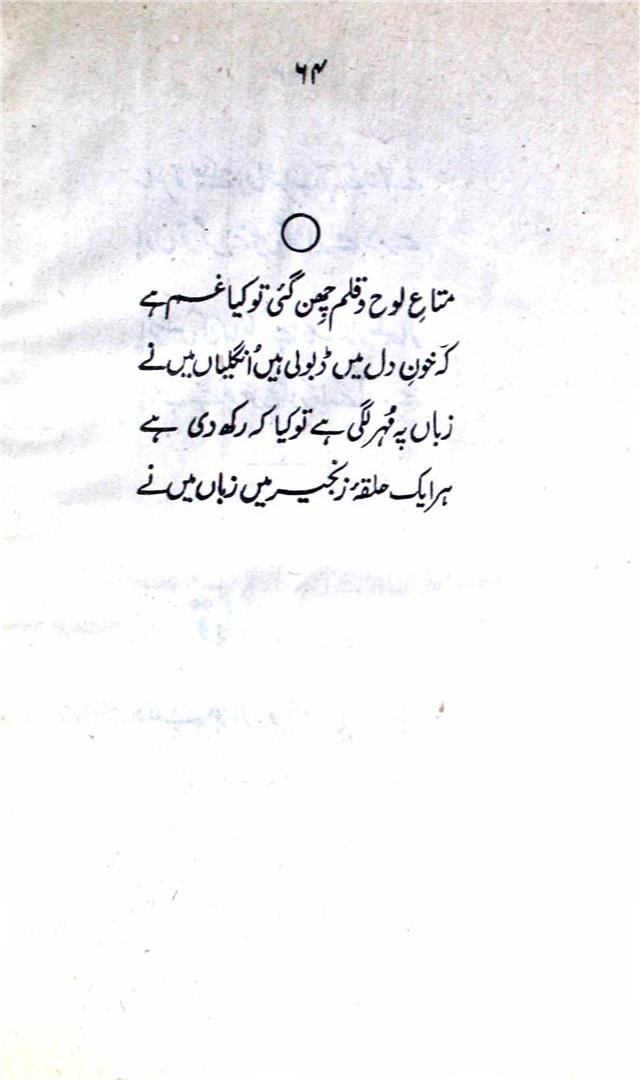 ۶۴
متاعِ لوح و قلم چھِن گئی تو کیا غم ہے
کہ خونِ دل میں ڈبولی ہیں اُنگلیاں میں نے
زباں پہ مُہر لگی ہے تو کیا کہ رکھ دی ہے
ہر ایک حلقۂ زنجیر میں زباں میں نے